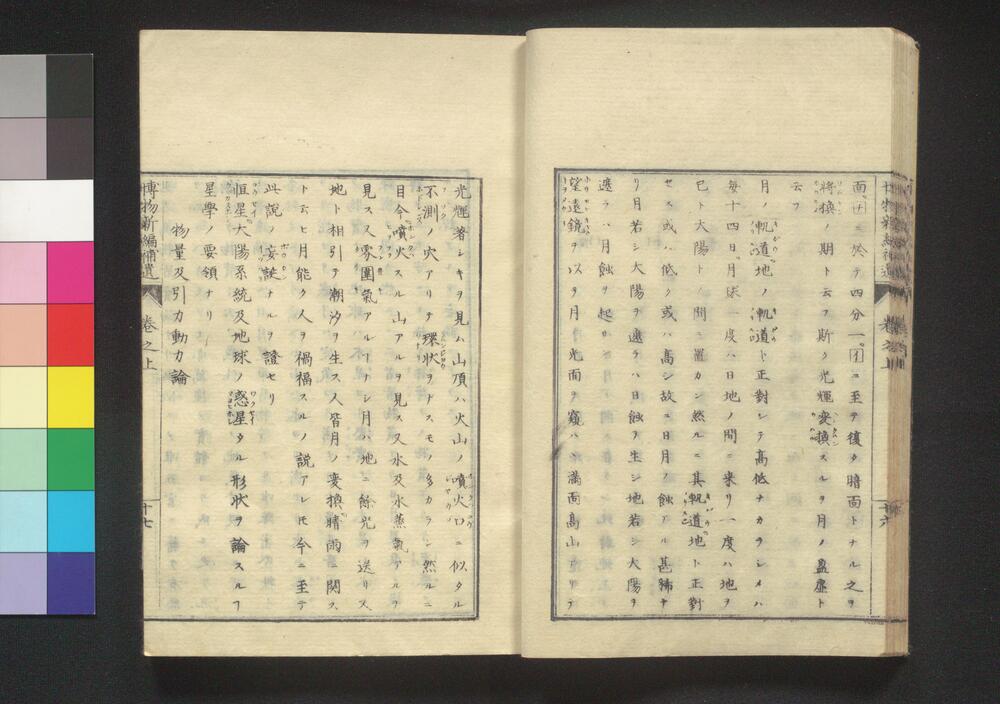 面(チ)ニ於テ四分一(イ)ニ至テ復タ暗面トナル之ヲ
将換ノ期ト云フ斯ク光輝変換スルヲ月ノ盈虚ト
云フ
月ノ軌道地ノ軌道ト正對シテ高低ナカラシメハ
毎十四日月球一度ハ日地ノ間ニ来リ一度ハ地ヲ
已ト大陽トノ間ニ置カン然ルニ其軌道地ト正對
セス或ハ低ク或ハ高シ故ニ日月ノ蝕アル甚稀ナ
リ月若シ大陽ヲ遮ラハ日蝕ヲ生シ地若シ大陽ヲ
遮ラハ月蝕ヲ起ス
望遠鏡ヲ以テ月ノ光面ヲ窺ハハ満面高山アリテ
光輝著シキヲ見ル山頂ハ火山ノ噴火口ニ似タル
不測ノ穴アリテ環状ヲナスモ多カラン然ルニ
目今噴火スル山アルヲ見ス又水及水蒸氣アルヲ
見スス雰圍氣アルコナシ月ハ地ニ餘光ヲ送リ又
地ト相引テ潮汐ヲ生ス人皆月ノ変換晴雨ニ関ス
ト云ヒ月能ク人ヲ禍福スルノ説アレ𪜈今ニ至テ
此説ノ妄誕ナルヲ證セリ
恒星大陽系統及地球ノ惑星タル形状ヲ論スルコ
星學ノ要領ナリ
物量及引力動力論
博物新編補遺
卷之上
十七